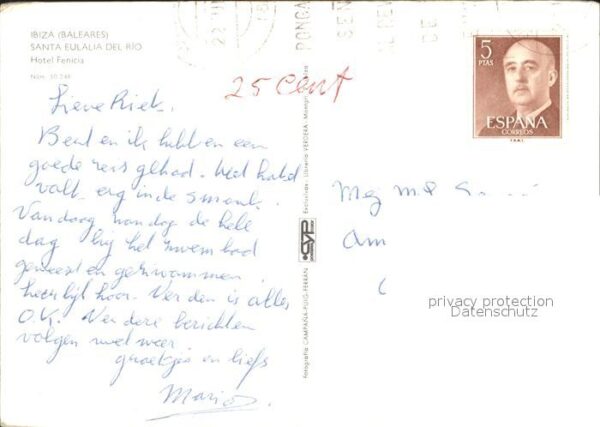 IBIZA (BALEARES)
SANTA EULALIA DEL RÍO
Hotel Fenicia
Núm. 50.248
25 cent
Lieve Riek.
Bent en ik hebben een
goede reis gehad. Het hotel
valt erg in de smaak.
Vandaag vandaag de hele
dag bij het zwembad
geweest en gezwommen
heerlijk hoor. Verder is alles
O.K. Verdere berichten
volgen wel weer.
groetjes en liefs
Mario
Fotografía CAMPAÑA-PUIG FERRAN
CYP
Exclusivas: Librería VERDERA
5
PTAS
ESPAÑA
CORREOS
Mej
Am
privacy protection
Datenschutz